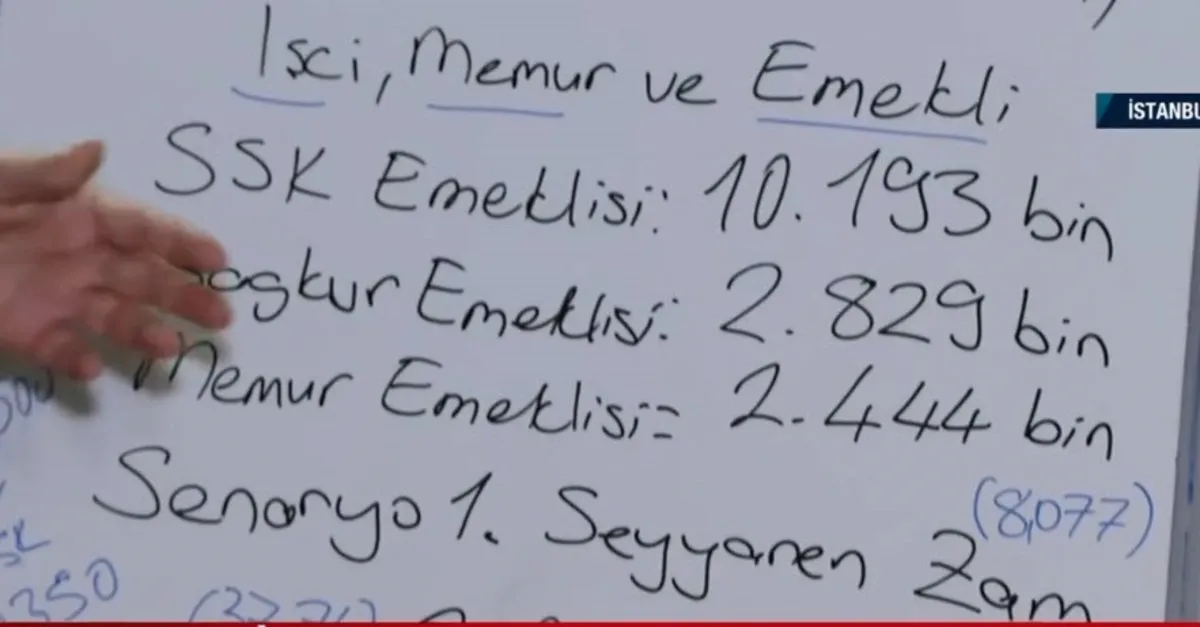 Isci, Memur ve Emekli
İSTANBU
SSK Emeklisi: 10.193 bin
Emeklisi: 2.829 bin
Memur Emeklisi= 2.444 bin
(8,077)
Senaryo 1. Seyyanen Zam
350